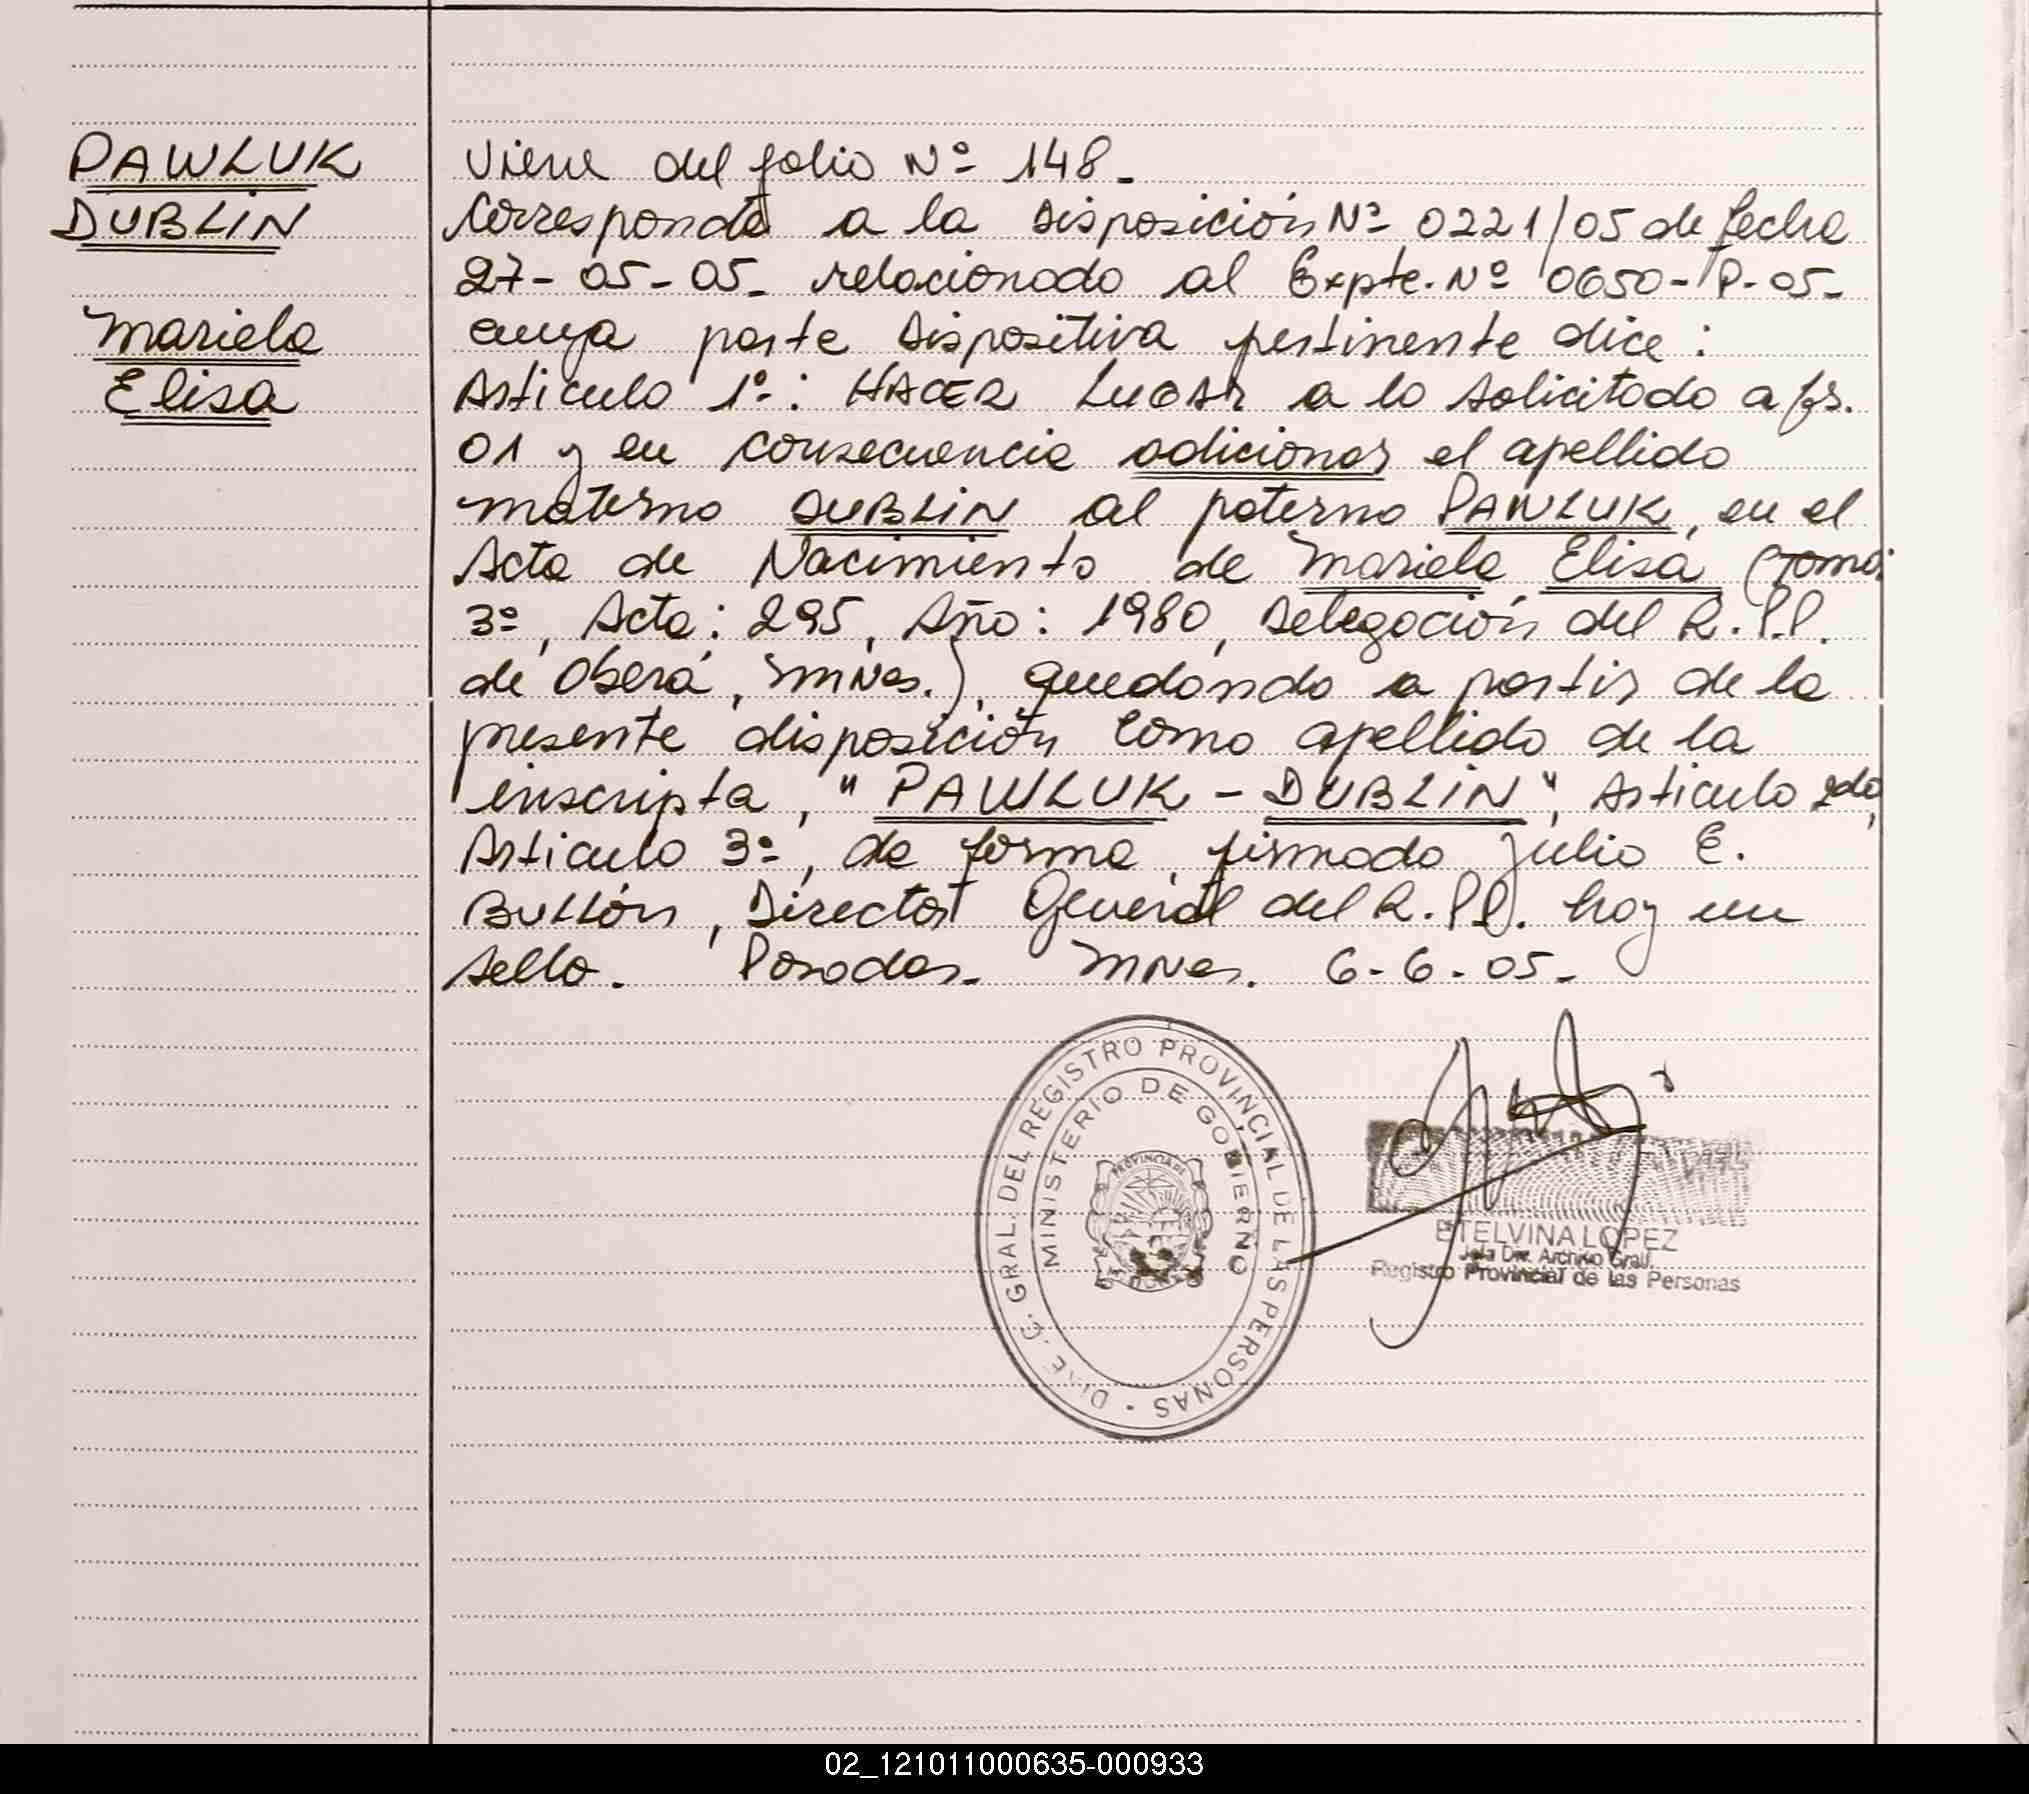 PAWLUK
DUBLIN
Mariela
Elisa
Viene del folio Nº 148.-
Corresponde a la Disposición Nº 0221/05 de fecha
27-05-05- relacionado al Expte. Nº 0650-P-05-
cuya parte Dispositiva pertinente dice:
Articulo 1º: HACER LUGAR a lo solicitado a fs.
01 y en consecuencia adicionar el apellido
materno DUBLIN al paterno PAWLUK, en el
Acta de Nacimiento de Mariela Elisa (Tomo:
3º, Acta: 295, Año: 1980, Delegación del R.P.P.
de Oberá, Mnes.), quedando a partir de la
presente disposición como apellido de la
inscripta, "PAWLUK - DUBLIN", Articulo 2do,
Articulo 3º, de forma, firmado Julio E.
Bullón, Director General del R.P.P. hay un
sello. Posadas. Mnes. 6-6-05-
DIREC. GRAL. DEL REGISTRO PROVINCIAL DE LAS PERSONAS
MINISTERIO DE GOBIERNO
PROVINCIA DE
ETELVINA LOPEZ
Jefa Dto. Archivo Gral.
Registro Provincial de las Personas
02_121011000635-000933